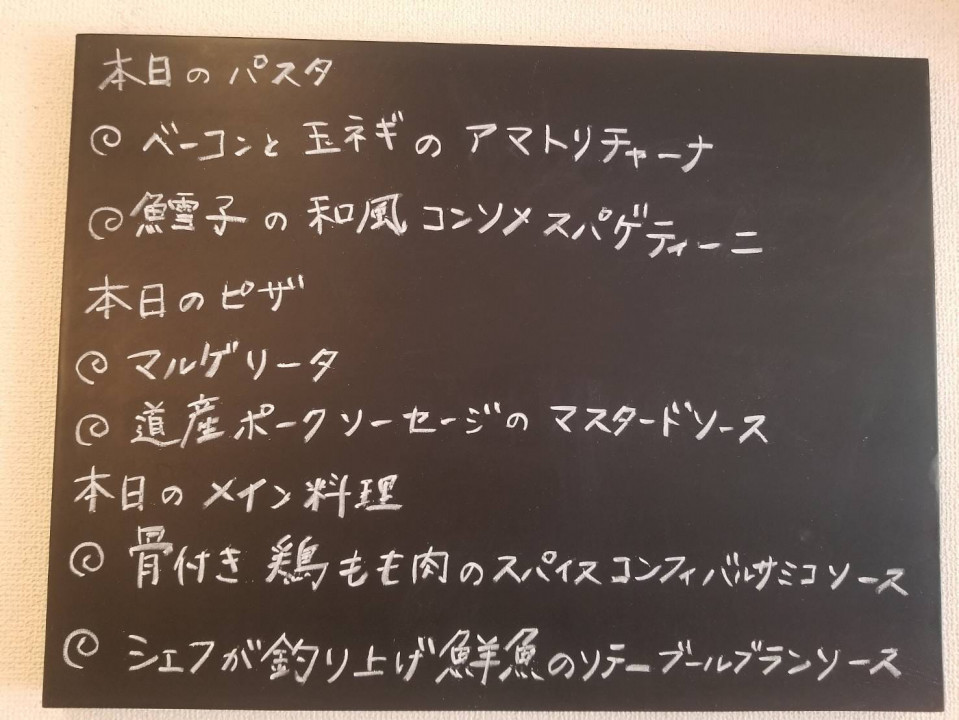 本日のパスタ
◎ ベーコンと玉ネギのアマトリチャーナ
◎ 鱈子の和風コンソメスパゲティーニ
本日のピザ
◎ マルゲリータ
◎ 道産ポークソーセージのマスタードソース
本日のメイン料理
◎ 骨付き鶏もも肉のスパイスコンフィバルサミコソース
◎ シェフが釣り上げ鮮魚のソテーブールブランソース